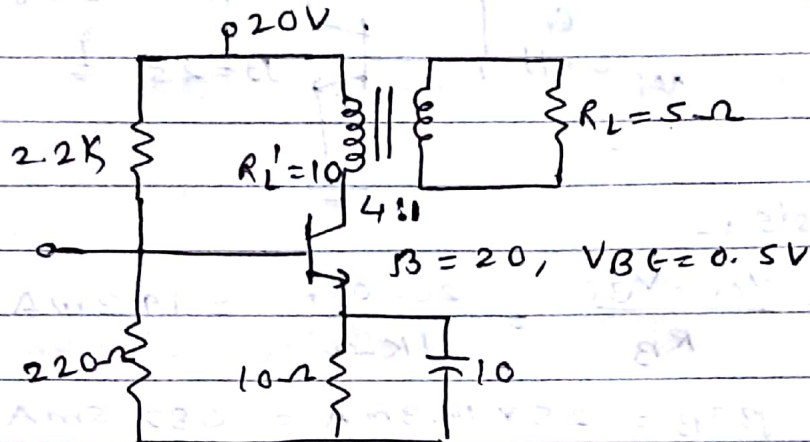 20V.
2.2K
R_L' = 10
R_L = 5Ω
4:1
β = 20, V_BE = 0.5V
220Ω
10Ω
10